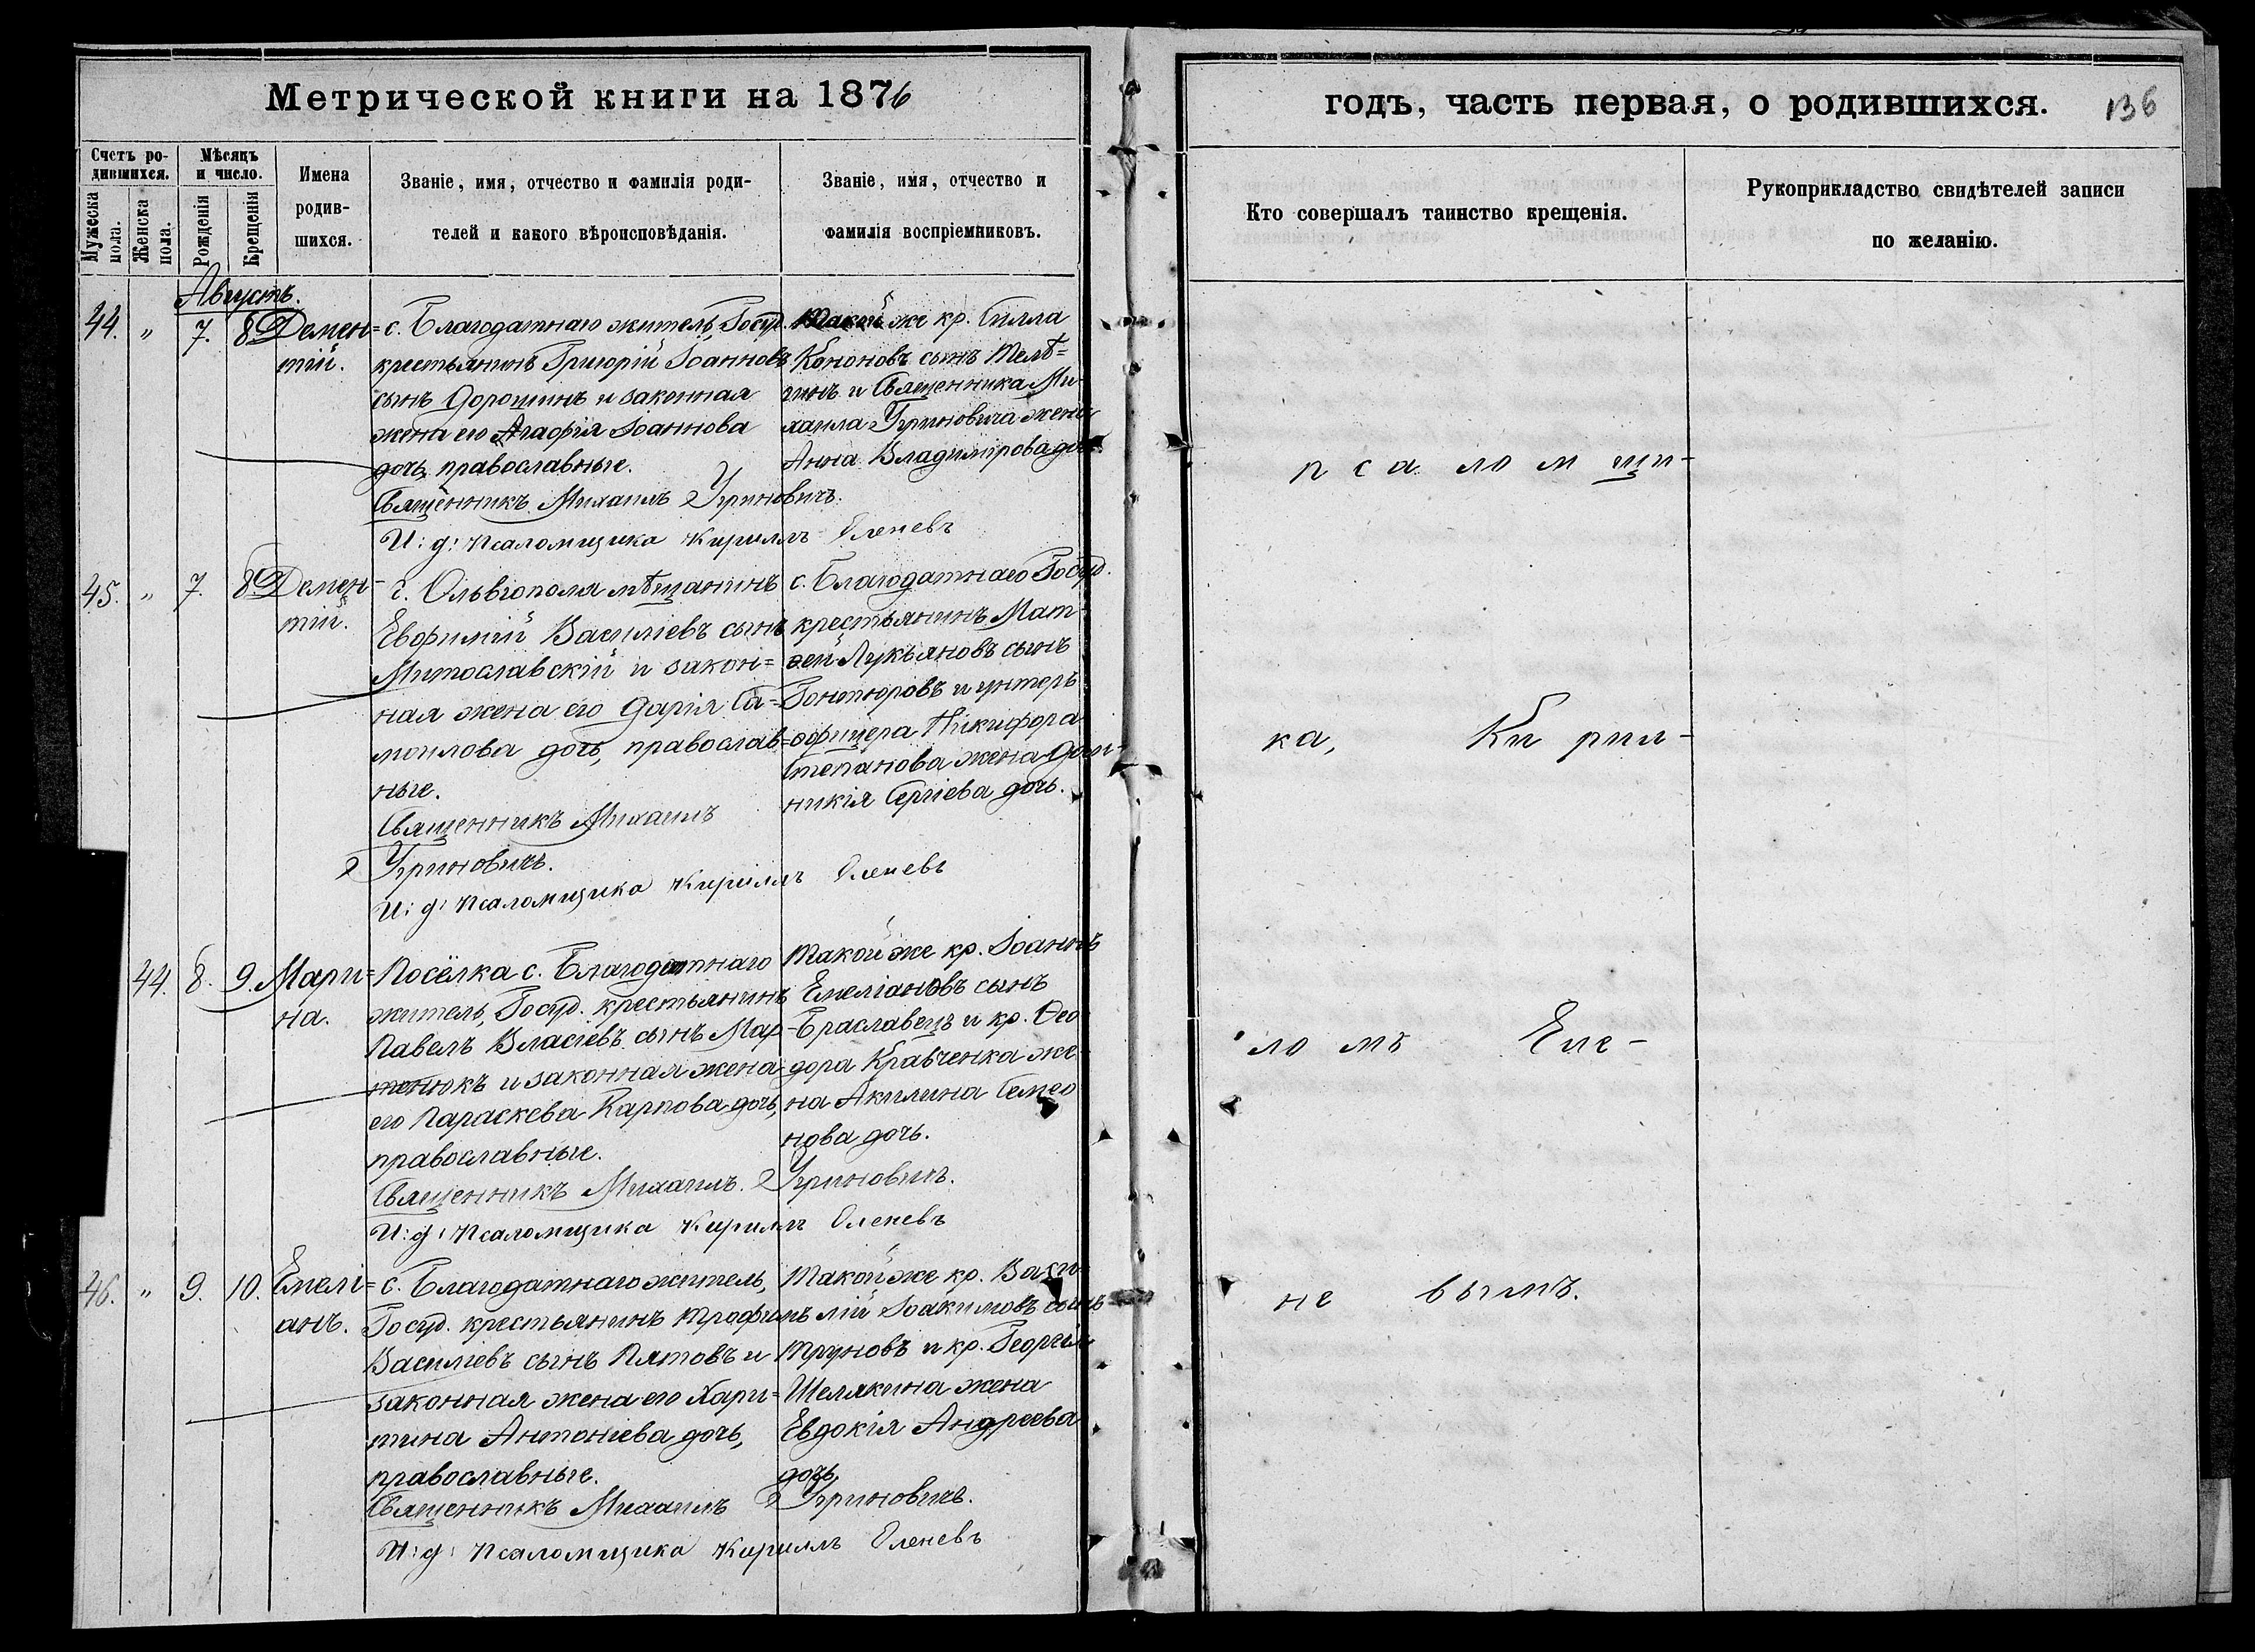 Метрической книги на 1876
Счетъ ро-
дившихся.
Мужеска
пола.
Женска
пола.
Мѣсяцъ
и число.
Рожденія
Крещенія
Имена
родив-
шихся.
Званіе, имя, отчество и фамилія роди-
телей и какого вѣроисповѣданія.
Званіе, имя, отчество и
фамилія воспріемниковъ.
Августъ.
44. " 7. 8. Демен=
тій.
с. Благодатнаго житель, Госуд.
крестьянинъ Григорій Іоанновъ
сынъ Дорошинъ и законная
жена его Агафія Іоаннова
дочь, православные.
Такой же кр. Силла
Кононовъ сынъ Телѣ=
гинъ и Священника Ми-
хаила Угриновича жена
Анна Владимірова дочь.
Священникъ Михаилъ Угриновичъ.
И: д: псаломщика Кириллъ Еленевъ
45. " 7. 8. Демен-
тій.
г. Ольвіополя мѣщанинъ
Евфимій Василіевъ сынъ
Митославскій и закон=
ная жена его Дарія Са=
моилова дочь, православ=
ные.
с. Благодатнаго Госуд.
крестьянинъ Мат-
ѳей Лукьяновъ сынъ
и унтеръ
офицера Никифора
Степанова жена Дом-
никія Сергіева дочь.
Священникъ Михаилъ
Угриновичъ.
И: д: псаломщика Кириллъ Еленевъ
44. 8. 9. Мари=
на.
Посёлка с. Благодатнаго
житель, Госуд. крестьянинъ
Павелъ Власіевъ сынъ Мар-
тенюкъ и законная жена
его Параскева Карпова дочь,
православные.
Такой же кр. Іоаннъ
Емеліановъ сынъ
Браславецъ и кр. Ѳео
дора Кравченка же-
на Акилина Симео
нова дочь.
Священникъ Михаилъ Угриновичъ.
И: д: псаломщика Кириллъ Еленевъ
46. " 9. 10. Емелі=
анъ.
с. Благодатнаго житель,
Госуд. крестьянинъ Трофимъ
Василіевъ сынъ Пятовъ и
законная жена его Хари=
тина Антоніева дочь,
православные.
Такой же кр. Васи-
лій Іоакимовъ сынъ
Труновъ и кр. Георгія
Шелякина жена
Евдокія Андреева
дочь.
Священникъ Михаилъ Угриновичъ.
И: д: псаломщика Кириллъ Еленевъ
годъ, часть первая, о родившихся.
136
Кто совершалъ таинство крещенія.
Рукоприкладство свидѣтелей записи
по желанію.
псаломщи-
ка, Кирил-
ломъ Еле-
невымъ.